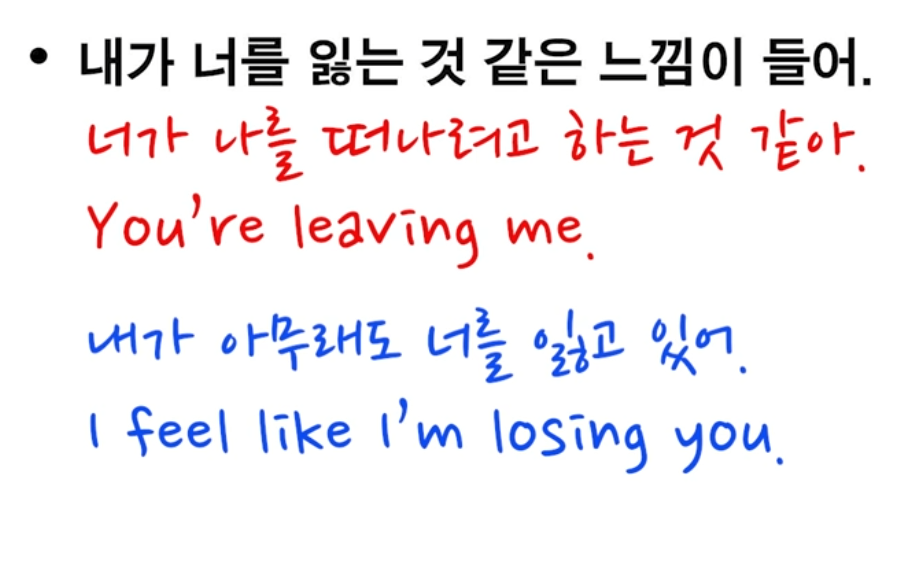 • 내가 너를 잃는 것 같은 느낌이 들어.
너가 나를 떠나려고 하는 것 같아.
You're leaving me.
내가 아무래도 너를 잃고 있어.
I feel like I'm losing you.